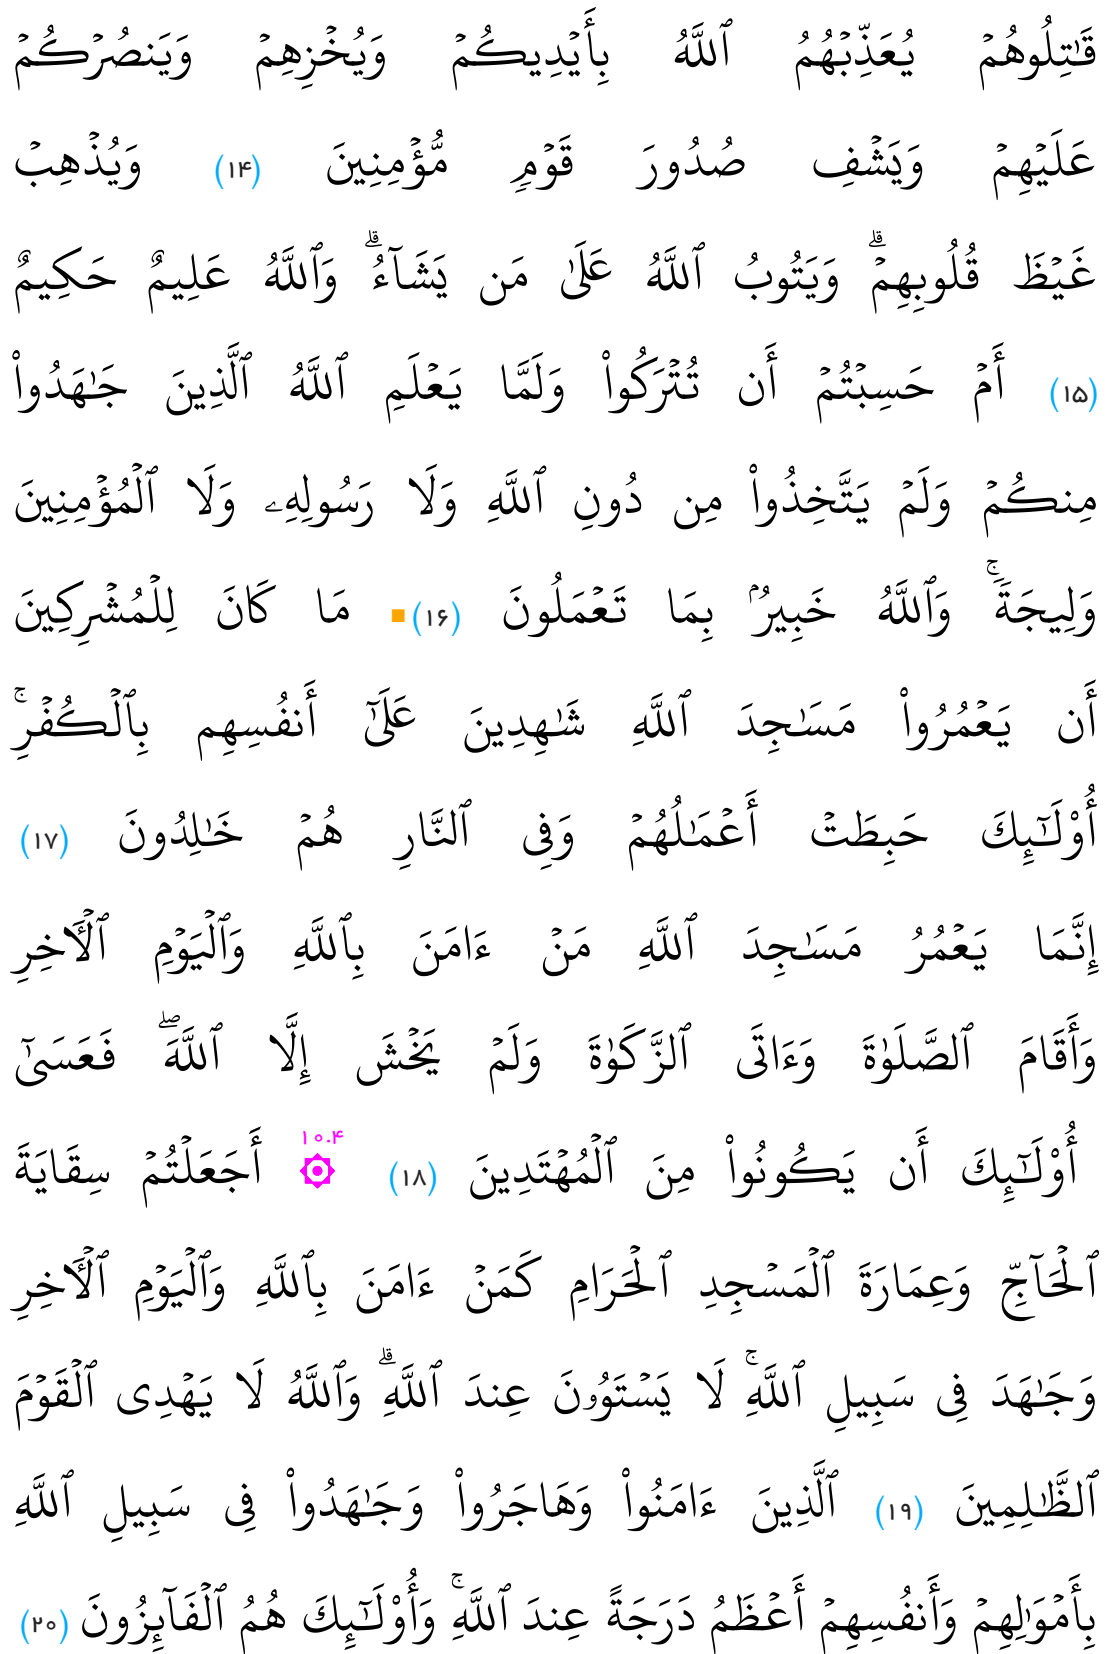 قَٰتِلُوهُمۡ يُعَذِّبۡهُمُ ٱللَّهُ بِأَيۡدِيكُمۡ وَيُخۡزِهِمۡ وَيَنصُرۡكُمۡ
عَلَيۡهِمۡ وَيَشۡفِ صُدُورَ قَوۡمٖ مُّؤۡمِنِينَ (۱۴) وَيُذۡهِبۡ
غَيۡظَ قُلُوبِهِمۡۗ وَيَتُوبُ ٱللَّهُ عَلَىٰ مَن يَشَآءُۗ وَٱللَّهُ عَلِيمٌ حَكِيمٌ
(۱۵) أَمۡ حَسِبۡتُمۡ أَن تُتۡرَكُواْ وَلَمَّا يَعۡلَمِ ٱللَّهُ ٱلَّذِينَ جَٰهَدُواْ
مِنكُمۡ وَلَمۡ يَتَّخِذُواْ مِن دُونِ ٱللَّهِ وَلَا رَسُولِهِۦ وَلَا ٱلۡمُؤۡمِنِينَ
وَلِيجَةٗۚ وَٱللَّهُ خَبِيرُۢ بِمَا تَعۡمَلُونَ (۱۶) مَا كَانَ لِلۡمُشۡرِكِينَ
أَن يَعۡمُرُواْ مَسَٰجِدَ ٱللَّهِ شَٰهِدِينَ عَلَىٰٓ أَنفُسِهِم بِٱلۡكُفۡرِۚ
أُوْلَٰٓئِكَ حَبِطَتۡ أَعۡمَٰلُهُمۡ وَفِي ٱلنَّارِ هُمۡ خَٰلِدُونَ (۱۷)
إِنَّمَا يَعۡمُرُ مَسَٰجِدَ ٱللَّهِ مَنۡ ءَامَنَ بِٱللَّهِ وَٱلۡيَوۡمِ ٱلۡأٓخِرِ
وَأَقَامَ ٱلصَّلَوٰةَ وَءَاتَى ٱلزَّكَوٰةَ وَلَمۡ يَخۡشَ إِلَّا ٱللَّهَۖ فَعَسَىٰٓ
أُوْلَٰٓئِكَ أَن يَكُونُواْ مِنَ ٱلۡمُهۡتَدِينَ (۱۸) ۞ ۱۰.۴ أَجَعَلۡتُمۡ سِقَايَةَ
ٱلۡحَآجِّ وَعِمَارَةَ ٱلۡمَسۡجِدِ ٱلۡحَرَامِ كَمَنۡ ءَامَنَ بِٱللَّهِ وَٱلۡيَوۡمِ ٱلۡأٓخِرِ
وَجَٰهَدَ فِي سَبِيلِ ٱللَّهِۚ لَا يَسۡتَوُۥنَ عِندَ ٱللَّهِۗ وَٱللَّهُ لَا يَهۡدِي ٱلۡقَوۡمَ
ٱلظَّٰلِمِينَ (۱۹) ٱلَّذِينَ ءَامَنُواْ وَهَاجَرُواْ وَجَٰهَدُواْ فِي سَبِيلِ ٱللَّهِ
بِأَمۡوَٰلِهِمۡ وَأَنفُسِهِمۡ أَعۡظَمُ دَرَجَةً عِندَ ٱللَّهِۚ وَأُوْلَٰٓئِكَ هُمُ ٱلۡفَآئِزُونَ (۲۰)